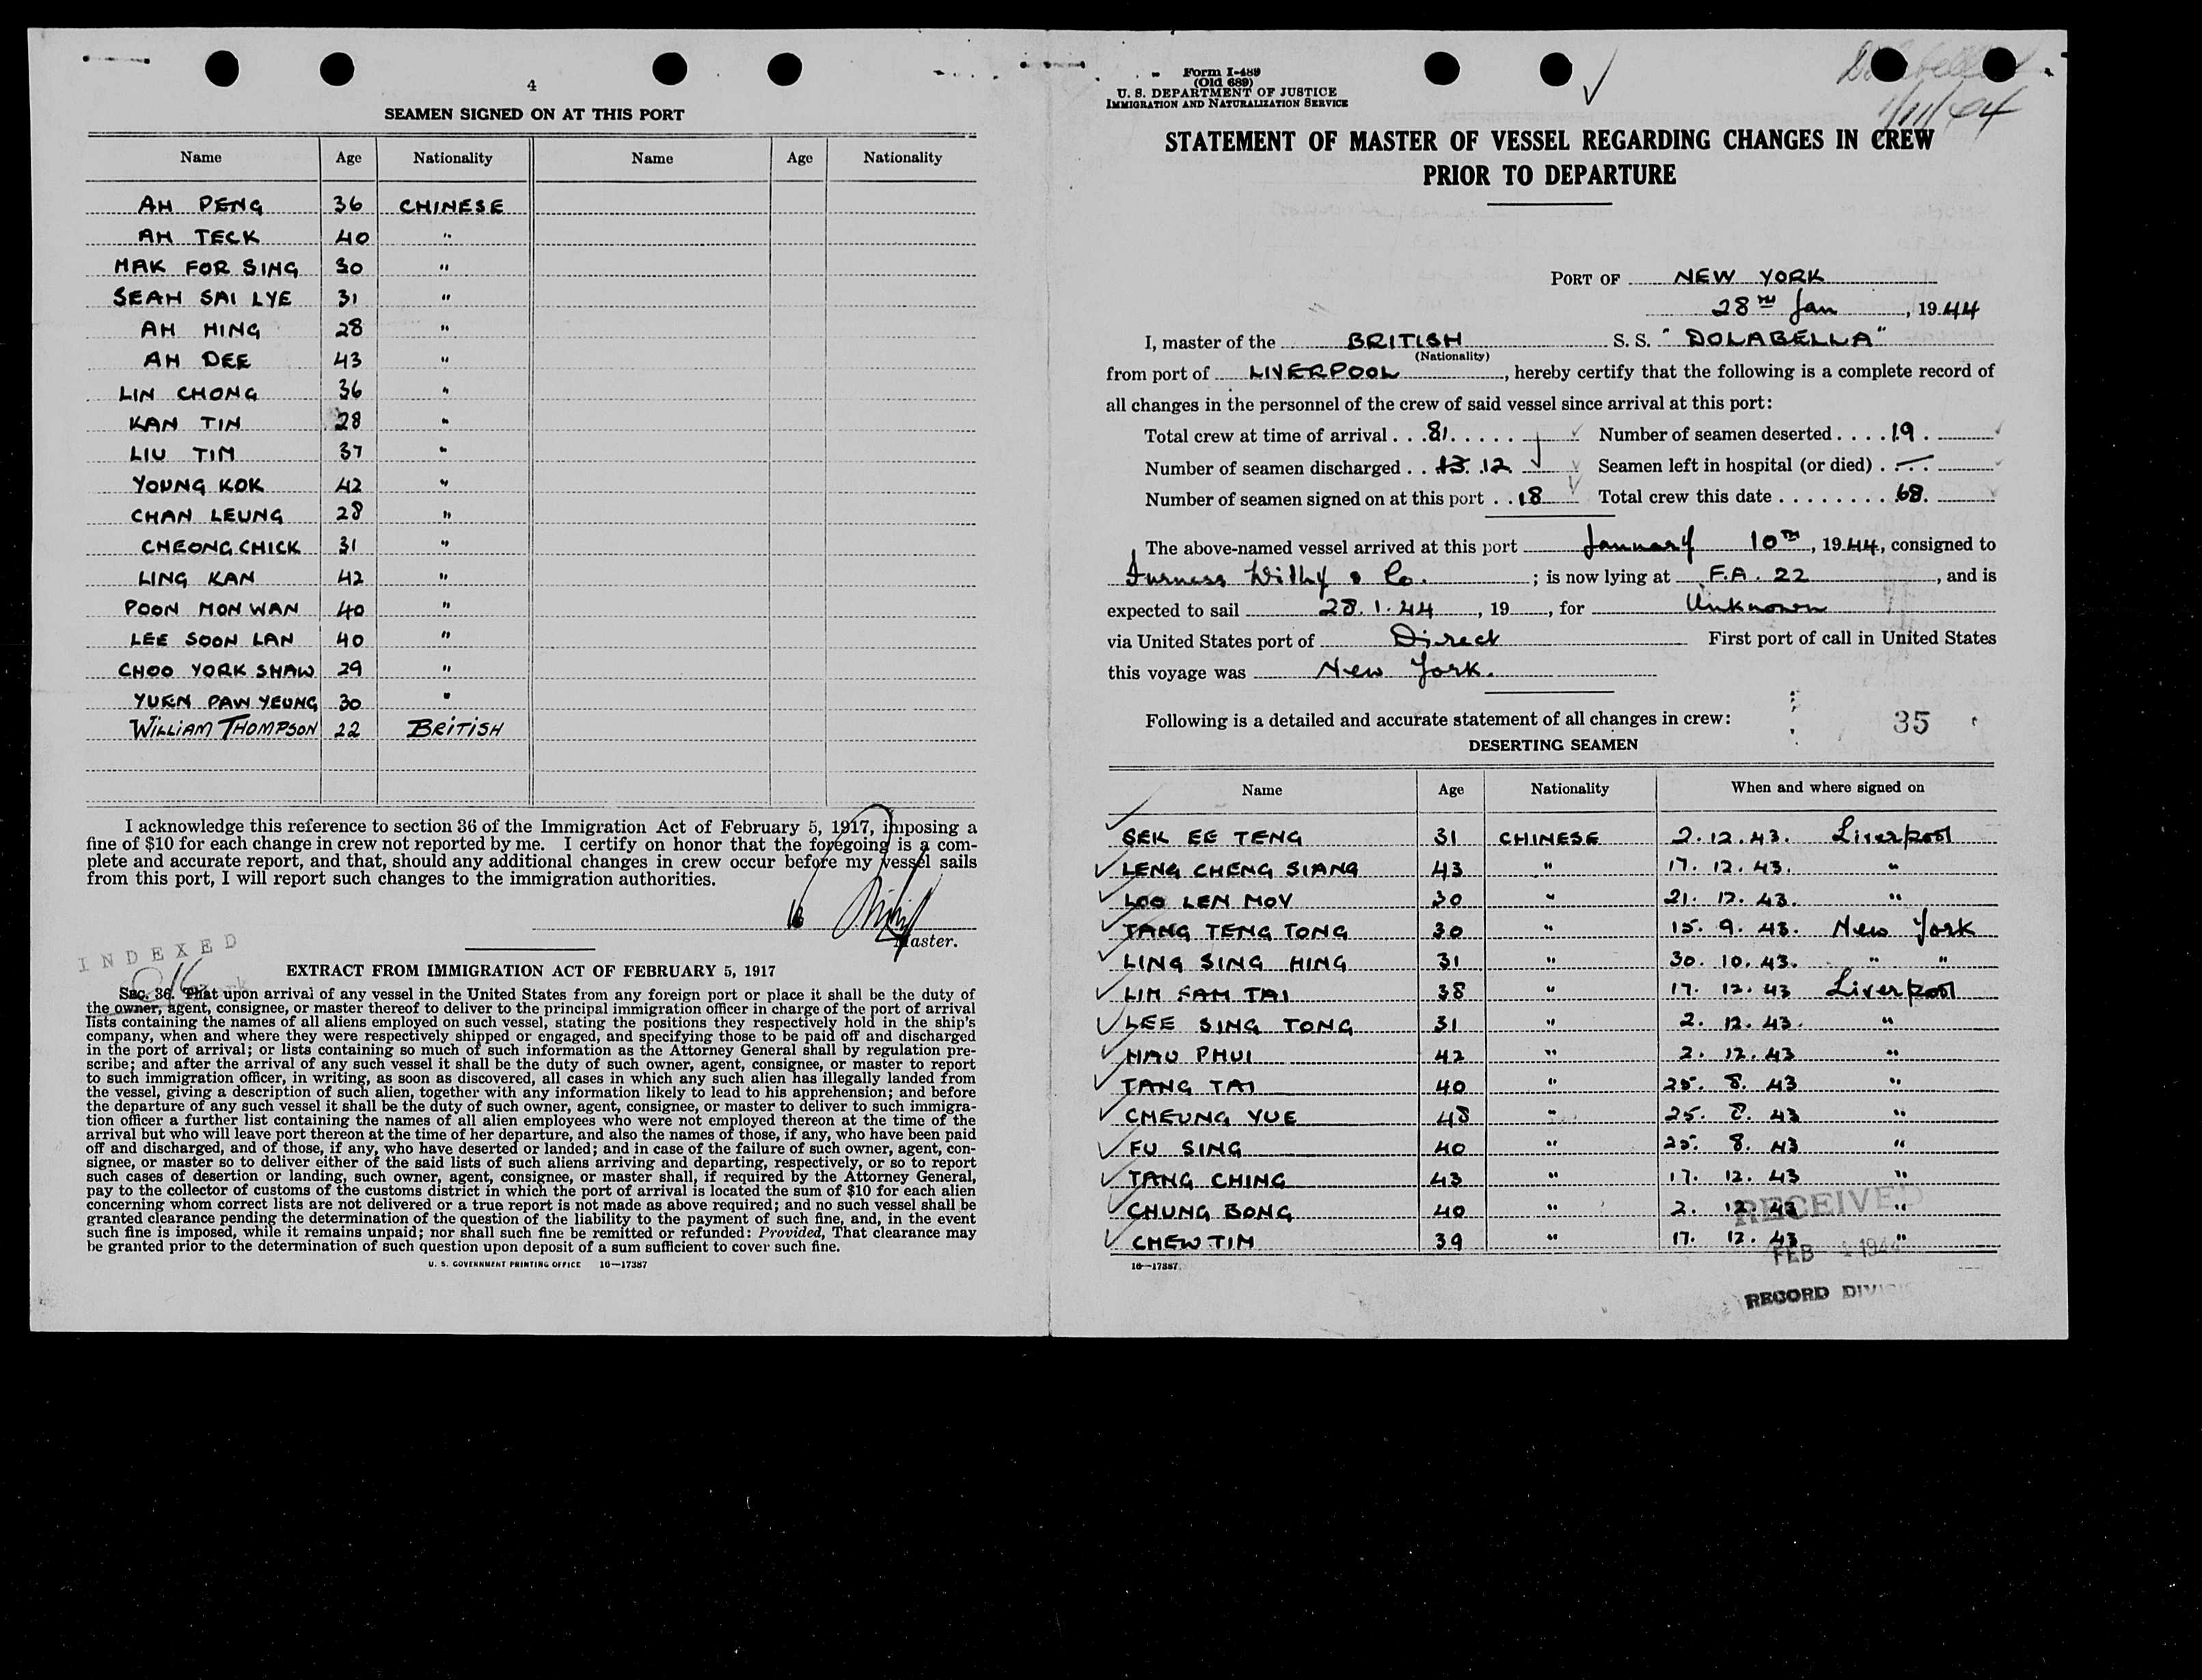 4
SEAMEN SIGNED ON AT THIS PORT
Name Age Nationality Name Age Nationality
AH PENG 36 CHINESE
AH TECK 40 "
MAK FOR SING 30 "
SEAH SAI LYE 31 "
AH HING 28 "
AH DEE 43 "
LIN CHONG 36 "
KAN TIN 28 "
LIU TIM 37 "
YOUNG KOK 42 "
CHAN LEUNG 28 "
CHEONG CHICK 31 "
LING KAN 42 "
POON MON WAN 40 "
LEE SOON LAN 40 "
CHOO YORK SHAW 29 "
YUEN PAW YEUNG 30 "
WILLIAM THOMPSON 22 BRITISH
I acknowledge this reference to section 36 of the Immigration Act of February 5, 1917, imposing a
fine of $10 for each change in crew not reported by me. I certify on honor that the foregoing is a com-
plete and accurate report, and that, should any additional changes in crew occur before my vessel sails
from this port, I will report such changes to the immigration authorities.
Master.
INDEXED
EXTRACT FROM IMMIGRATION ACT OF FEBRUARY 5, 1917
Sec. 36. That upon arrival of any vessel in the United States from any foreign port or place it shall be the duty of
the owner, agent, consignee, or master thereof to deliver to the principal immigration officer in charge of the port of arrival
lists containing the names of all aliens employed on such vessel, stating the positions they respectively hold in the ship's
company, when and where they were respectively shipped or engaged, and specifying those to be paid off and discharged
in the port of arrival; or lists containing so much of such information as the Attorney General shall by regulation pre-
scribe; and after the arrival of any such vessel it shall be the duty of such owner, agent, consignee, or master to report
to such immigration officer, in writing, as soon as discovered, all cases in which any such alien has illegally landed from
the vessel, giving a description of such alien, together with any information likely to lead to his apprehension; and before
the departure of any such vessel it shall be the duty of such owner, agent, consignee, or master to deliver to such immigra-
tion officer a further list containing the names of all alien employees who were not employed thereon at the time of the
arrival but who will leave port thereon at the time of her departure, and also the names of those, if any, who have been paid
off and discharged, and of those, if any, who have deserted or landed; and in case of the failure of such owner, agent, con-
signee, or master so to deliver either of the said lists of such aliens arriving and departing, respectively, or so to report
such cases of desertion or landing, such owner, agent, consignee, or master shall, if required by the Attorney General,
pay to the collector of customs of the customs district in which the port of arrival is located the sum of $10 for each alien
concerning whom correct lists are not delivered or a true report is not made as above required; and no such vessel shall be
granted clearance pending the determination of the question of the liability to the payment of such fine, and, in the event
such fine is imposed, while it remains unpaid; nor shall such fine be remitted or refunded: Provided, That clearance may
be granted prior to the determination of such question upon deposit of a sum sufficient to cover such fine.
U. S. GOVERNMENT PRINTING OFFICE 16—17387
Form I-489
(Old 689)
U. S. DEPARTMENT OF JUSTICE
IMMIGRATION AND NATURALIZATION SERVICE
1/11/44
STATEMENT OF MASTER OF VESSEL REGARDING CHANGES IN CREW
PRIOR TO DEPARTURE
PORT OF NEW YORK
28TH Jan, 1944
I, master of the BRITISH S. S. "DOLABELLA"
(Nationality)
from port of LIVERPOOL, hereby certify that the following is a complete record of
all changes in the personnel of the crew of said vessel since arrival at this port:
Total crew at time of arrival . . . 81 . . . . . Number of seamen deserted . . . . 19 .
Number of seamen discharged . . 13. 12 Seamen left in hospital (or died) . — . .
Number of seamen signed on at this port . . 18 Total crew this date . . . . . . . . 68.
The above-named vessel arrived at this port January 10TH, 1944, consigned to
Furness Withy & Co. ; is now lying at F.A. 22, and is
expected to sail 28.1.44, 19 , for Unknown
via United States port of Direct First port of call in United States
this voyage was New York.
Following is a detailed and accurate statement of all changes in crew: 35
DESERTING SEAMEN
Name Age Nationality When and where signed on
SEK EE TENG 31 CHINESE 2. 12. 43. Liverpool
LENG CHENG SIANG 43 " 17. 12. 43. "
LOO LEN MOY 30 " 21. 12. 43. "
TANG TENG TONG 30 " 15. 9. 43. New York
LING SING HING 31 " 30. 10. 43. " "
LIM SAM TAI 38 " 17. 12. 43 Liverpool
LEE SING TONG 31 " 2. 12. 43. "
HAU PHUI 42 " 2. 12. 43 "
TANG TAI 40 " 25. 8. 43 "
CHEUNG YUE 48 " 25. 8. 43 "
FU SING 40 " 25. 8. 43 "
TANG CHING 43 " 17. 12. 43 "
CHUNG BONG 40 " 2. 12. 43 "
CHEW TIM 39 " 17. 12. 43 "
16—17387
RECEIVED
FEB 1944
RECORD